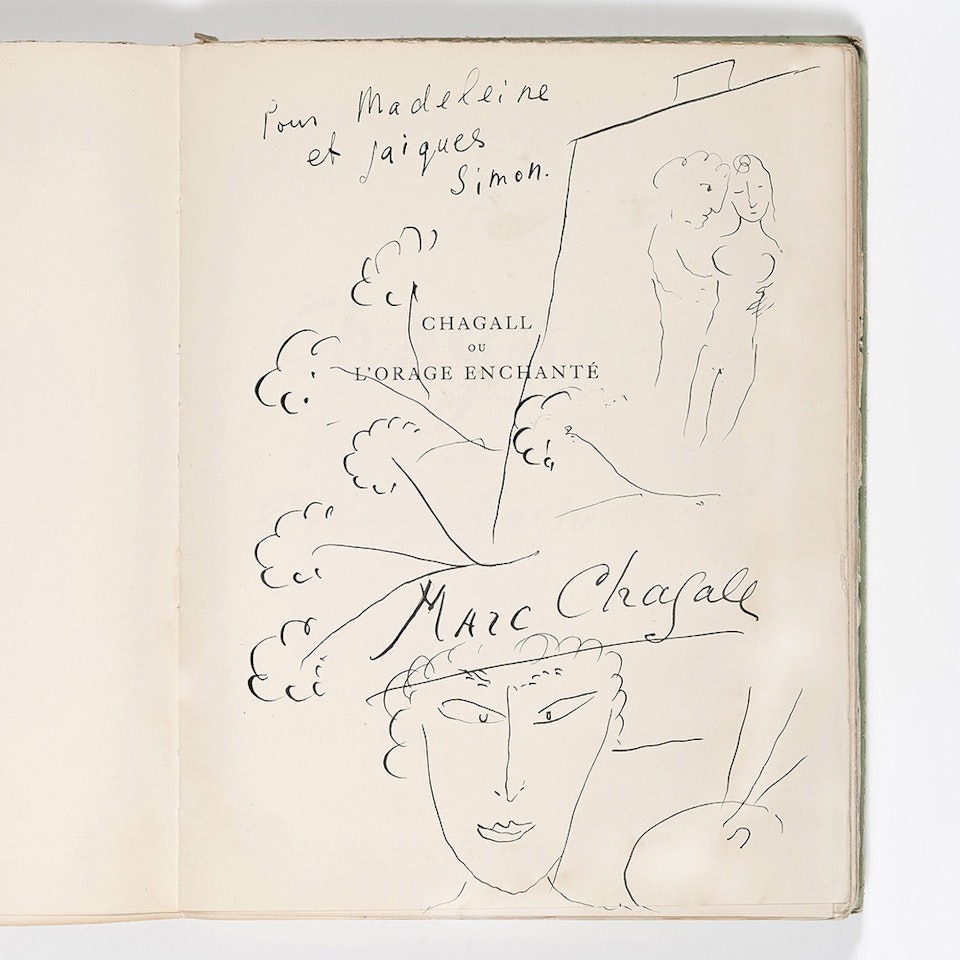 Pour Madeleine
et jaiques
Simon.
CHAGALL
OU
L'ORAGE ENCHANTÉ
Marc Chagall